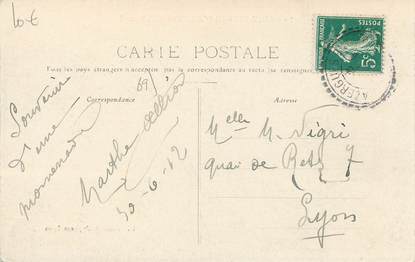 10€
CARTE POSTALE
Tous les pays étrangers n'acceptent pas la correspondance au recto (se renseigner
69
Correspondance
Adresse
POSTES
5c
AZERGUES
Souvenir
d'une
promenade
Marthe
30-6-12
Melle M. Nigri
quai de Retz 7
Lyon